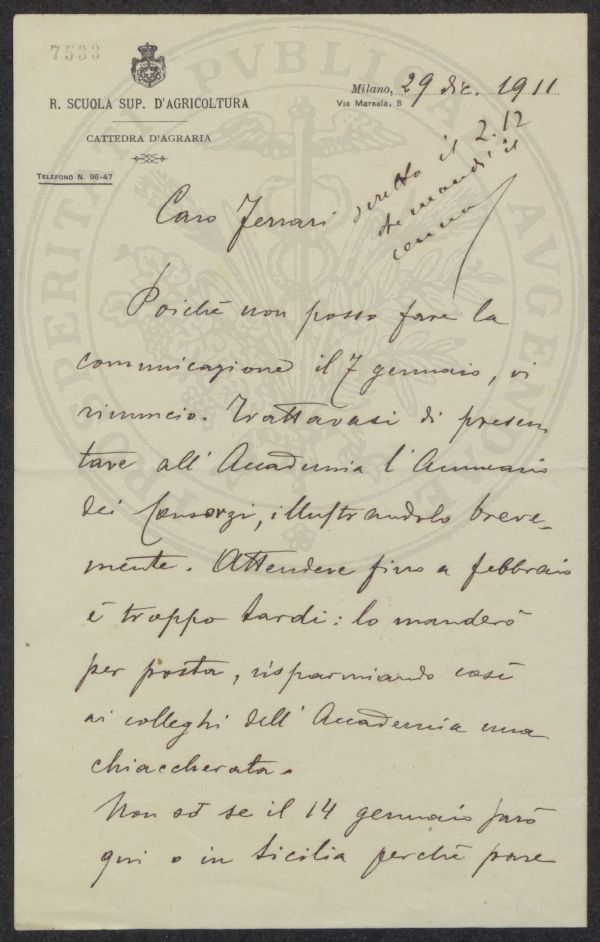 7533
R. SCUOLA SUP. D'AGRICOLTURA
CATTEDRA D'AGRARIA
TELEFONO N. 96-47
Milano, 29 dic. 1911
Via Marsala, 8
il 2.12
Caro Ferrari
Poichè non posso fare la
comunicazione il 7 gennaio, vi
rinuncio. Trattavasi di presen
tare all'Accademia l'Annuario
dei Consorzi, illustrandolo breve-
mente. Attendere fino a febbraio
è troppo tardi: lo manderò
per posta, risparmiando così
ai colleghi dell'Accademia una
chiaccherata.
Non so se il 14 gennaio sarò
qui o in Sicilia perchè pare
PROSPERITATI PVBLICAE AVGENDAE